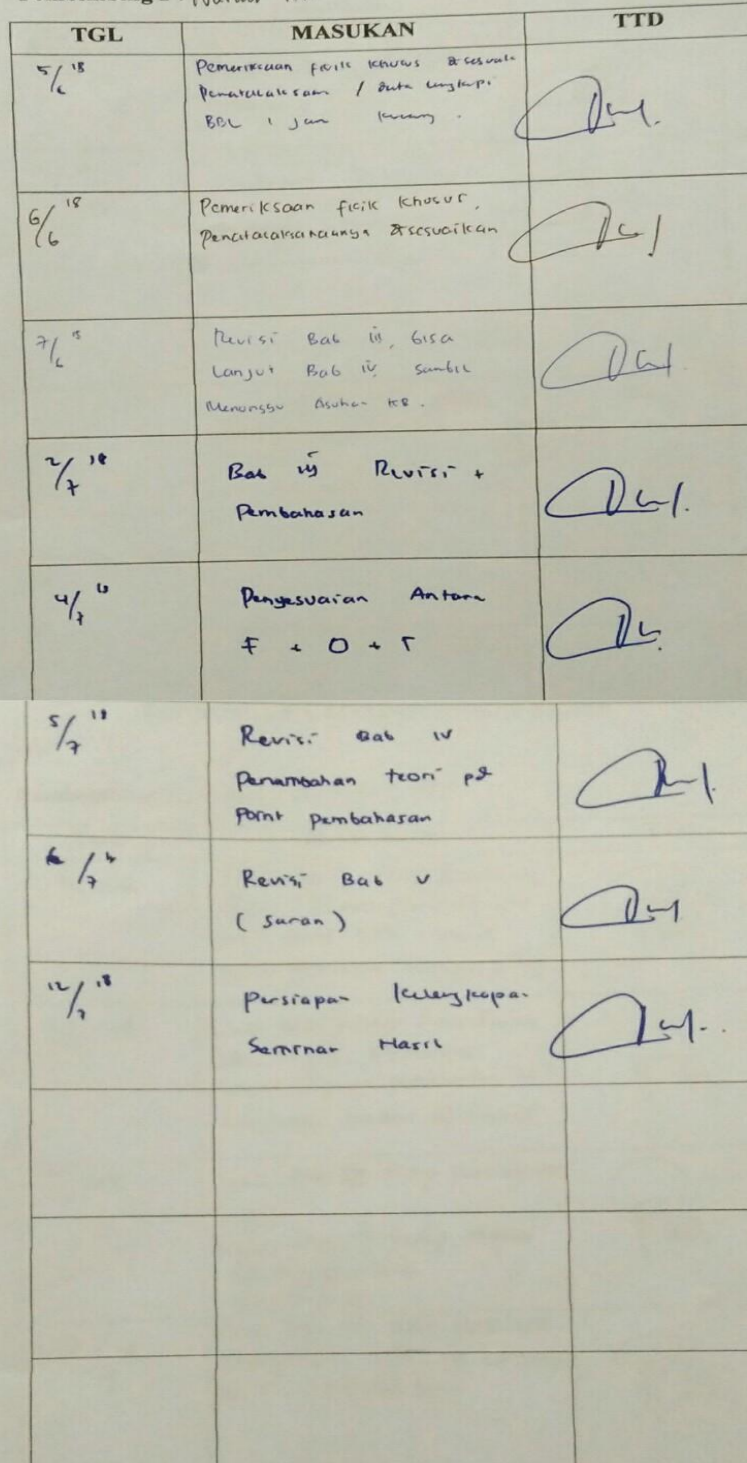 TGL MASUKAN TTD
5/6 18 Pemeriksaan fisik khusus
Penatalaksaan / data lengkapi
BBL 1 jam kurang .
6/6 18 Pemeriksaan ficik khusus,
Penatalaksanaannya disesuaikan
7/6 18 Revisi Bab iii, bisa
Lanjut Bab iv, sambil
Menunggu Asuhan KB .
2/7 18 Bab iii Revisi +
Pembahasan
4/7 18 Penyesuaian Antara
F + O + T
5/7 18 Revisi Bab IV
Penambahan teori pd
Point pembahasan
6/7 18 Revisi Bab V
( saran )
12/7 18 Persiapan kelengkapan
Seminar Hasil